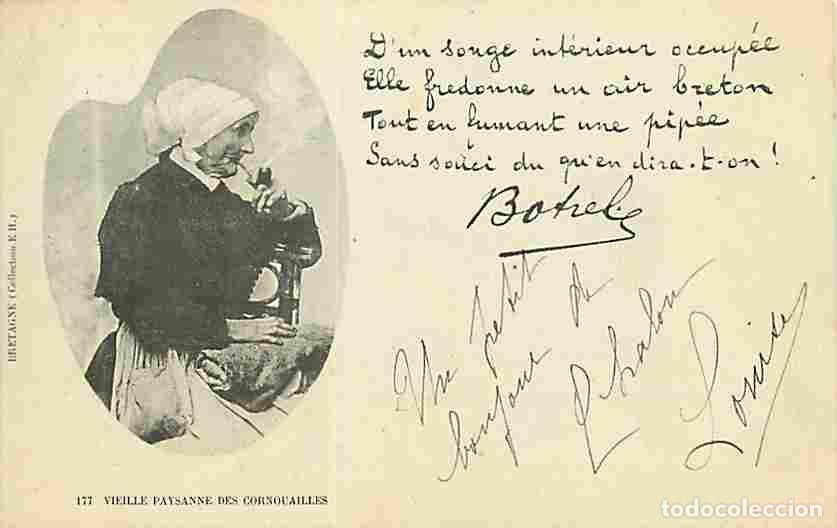 D'un songe intérieur occupée
Elle fredonne un air breton
Tout en fumant une pipée
Sans souci du qu'en dira-t-on !
Botrel
Un petit
bonjour de
Chalon
Louise
BRETAGNE (Collection E. H.)
177 VIEILLE PAYSANNE DES CORNOUAILLES
todocoleccion